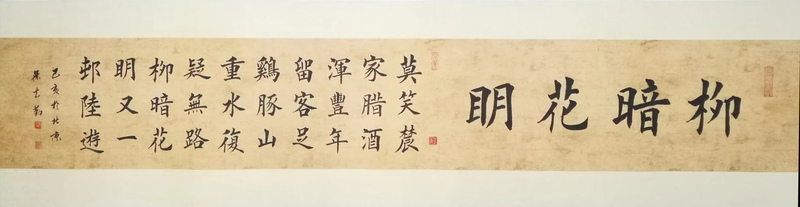 柳暗花明
莫笑農
家腊酒
渾豐年
留客足
鷄豚山
重水復
疑無路
柳暗花
明又一
邨陸遊
己亥於北京